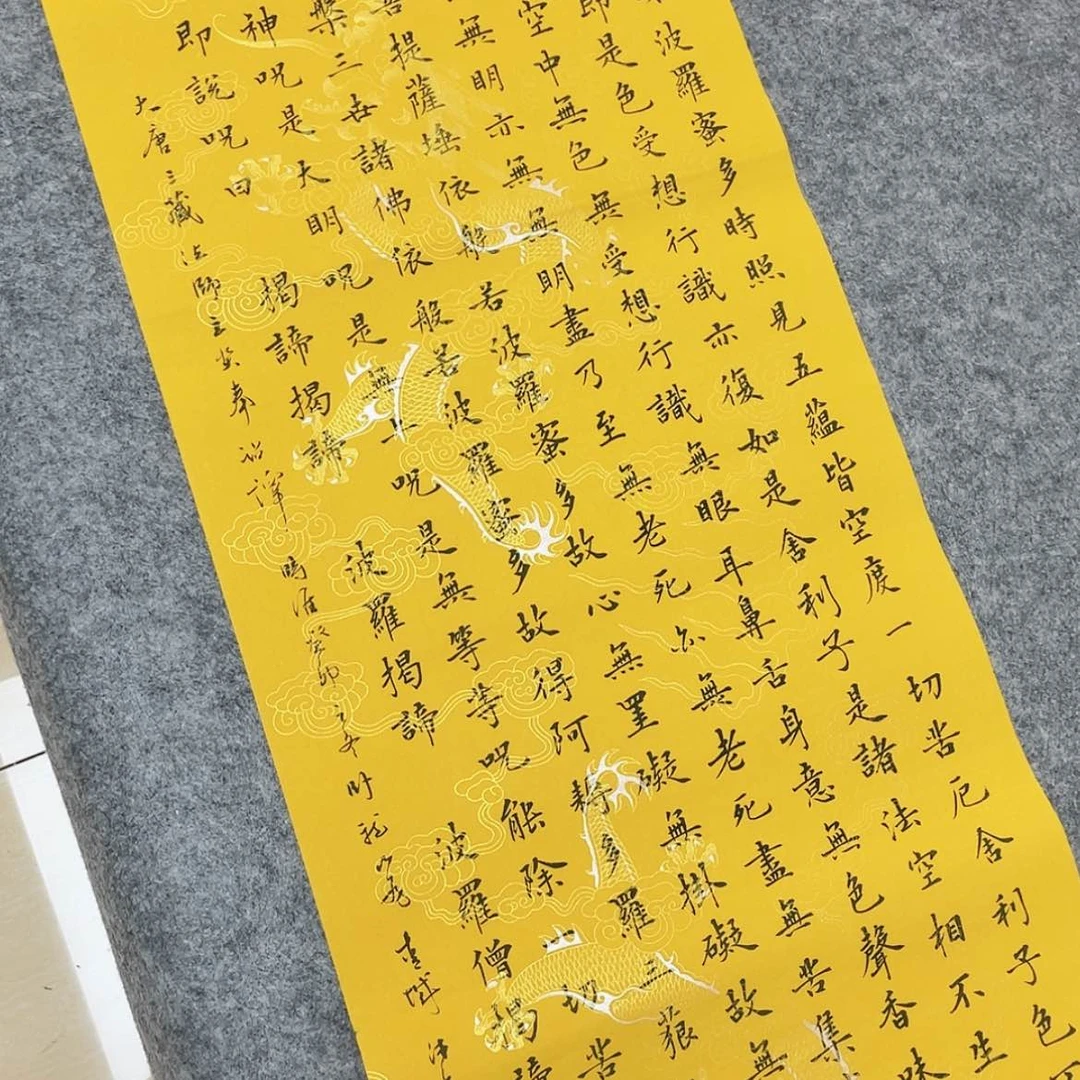 波羅蜜多時照見五蘊皆空度一切苦厄舍利子色
即是色受想行識亦復如是舍利子是諸法空相不生
空中無色無受想行識無眼耳鼻舌身意無色聲香味
無明亦無無明盡乃至無老死亦無老死盡無苦集
菩提薩埵依般若波羅蜜多故心無罣礙無掛礙故無
槃三世諸佛依般若波羅蜜多故得阿耨多羅三藐
神呪是大明呪是無上呪是無等等呪能除一切苦
即說呪曰 揭諦揭諦 波羅揭諦 波羅僧揭諦
大唐三藏法師玄奘奉詔譯 時維癸卯之年